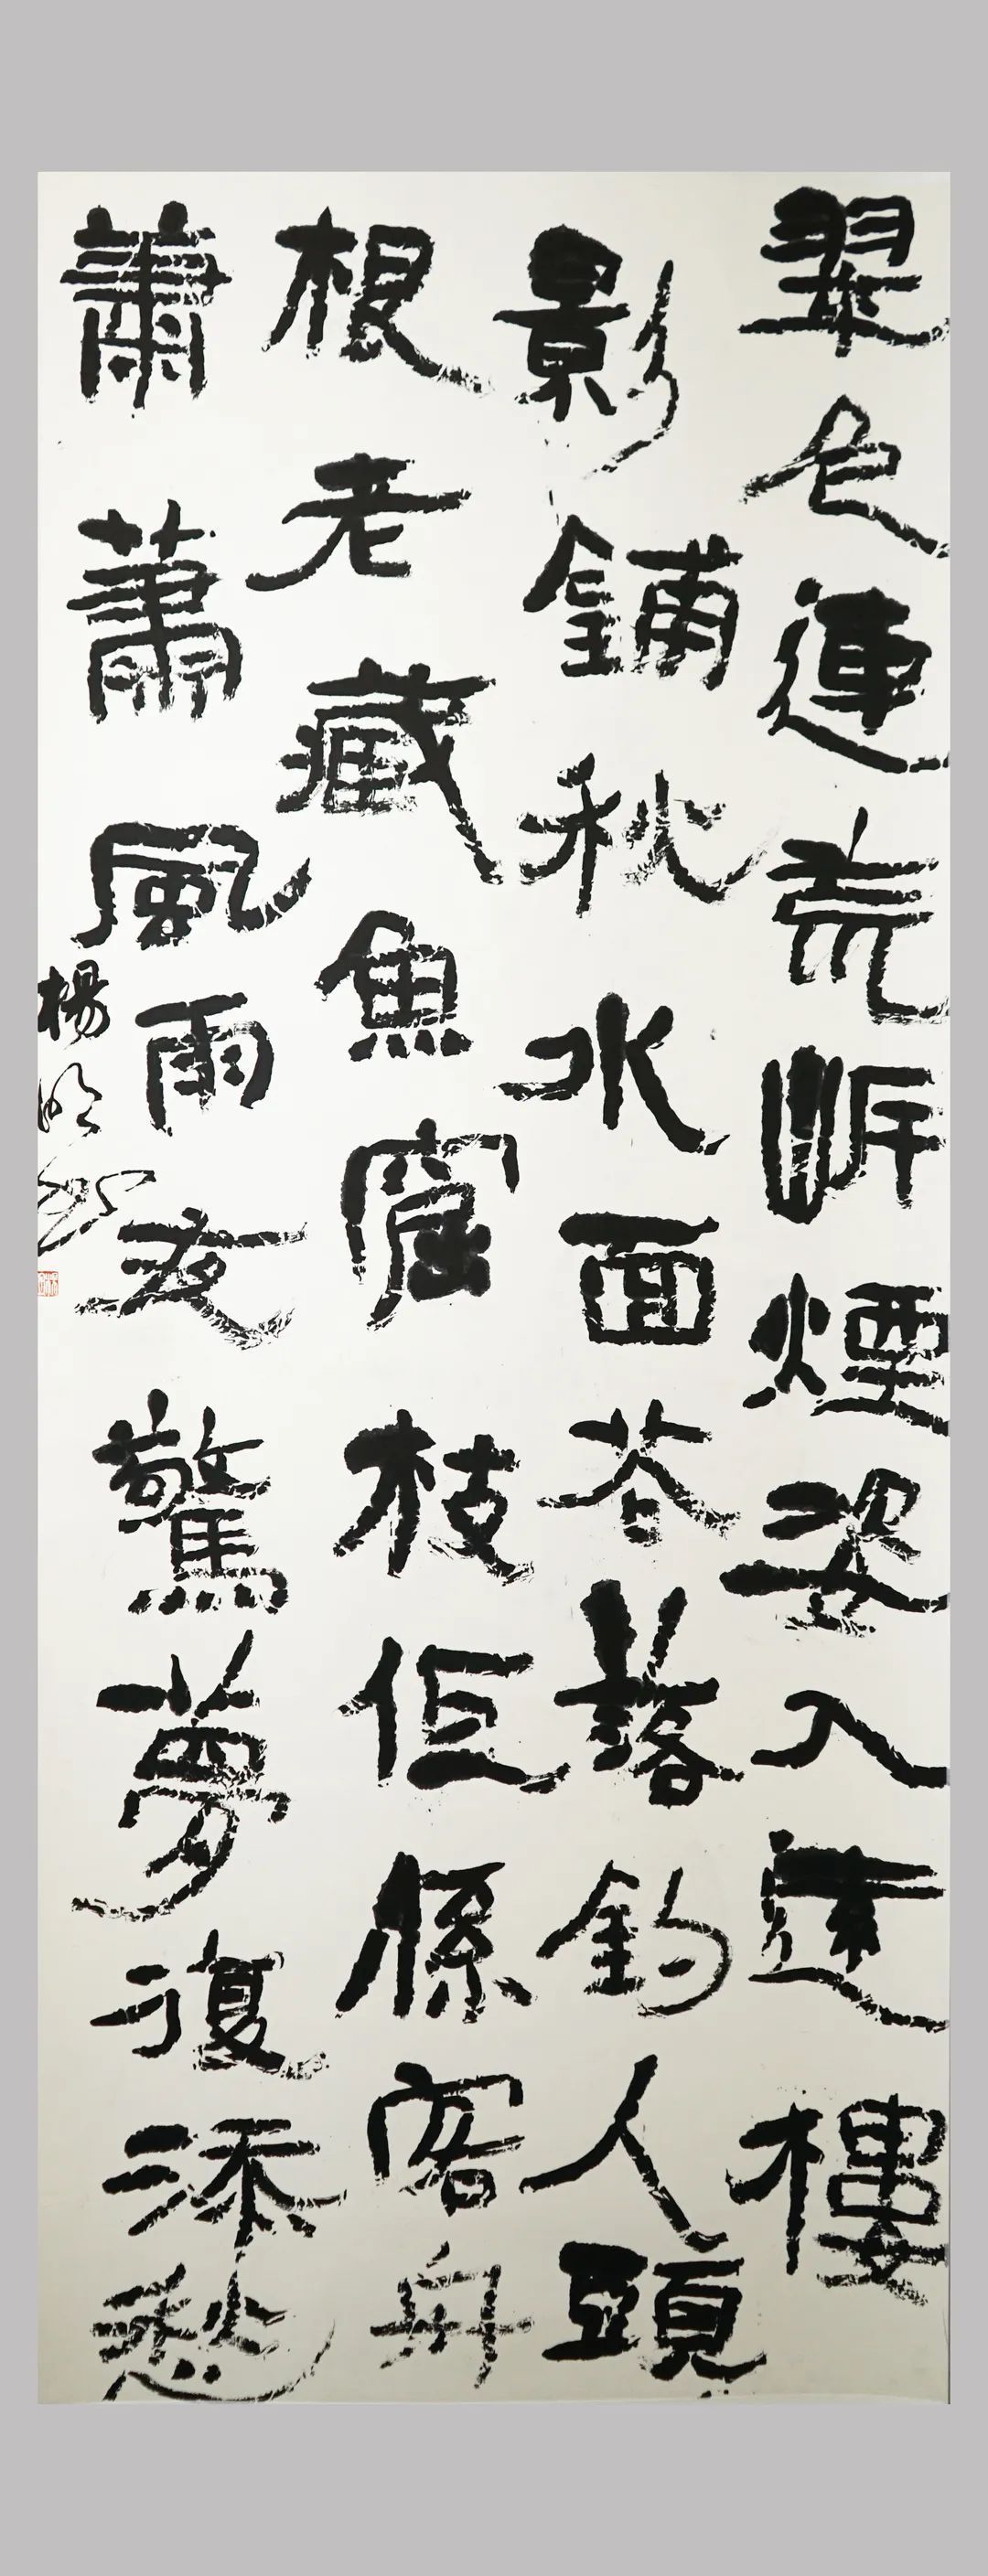 翠色連荒岸煙姿入遠樓
影鋪秋水面花落釣人頭
根老藏魚窟枝低係客舟
蕭蕭風雨夜驚夢復添愁
楊